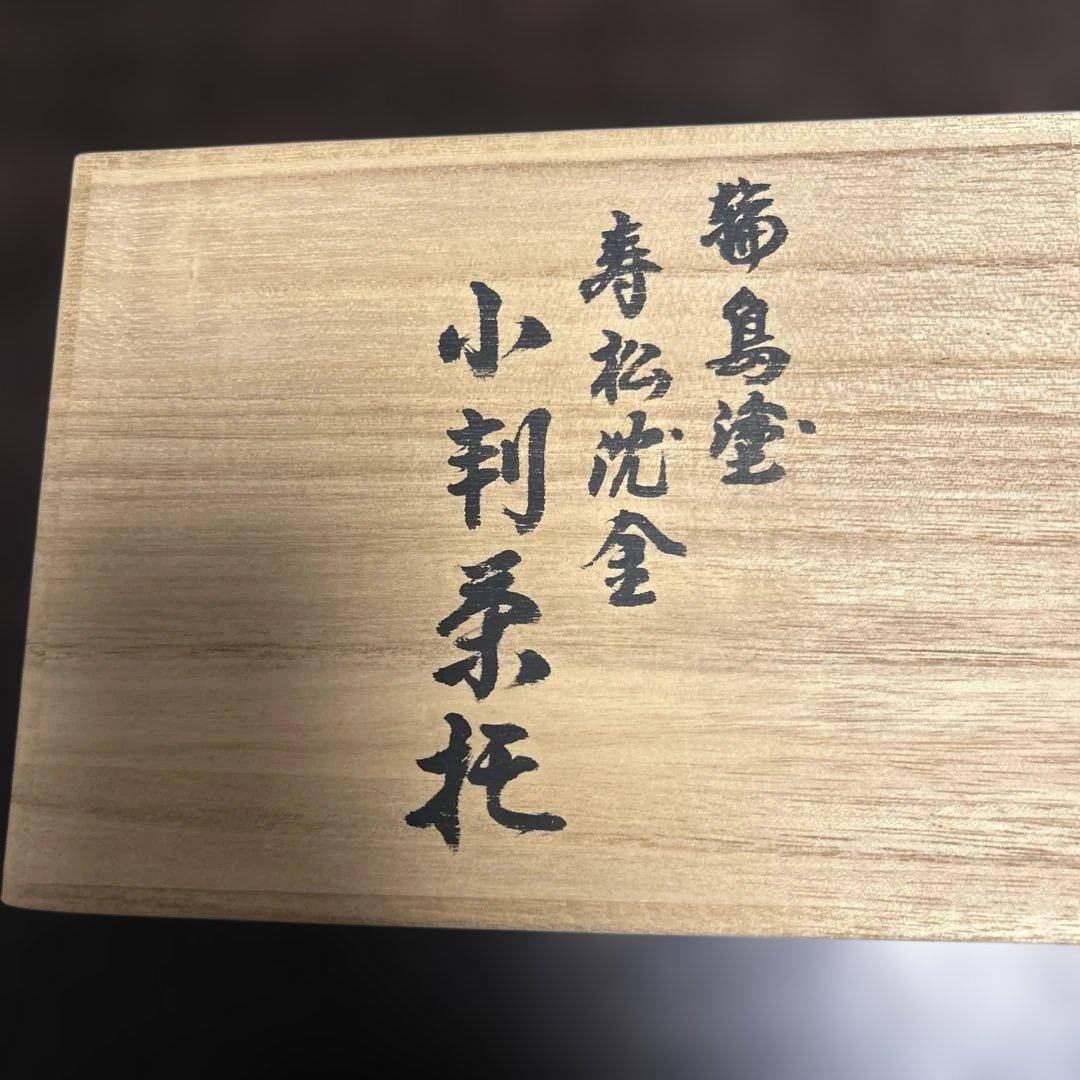 輪島塗
寿松沈金
小判茶托